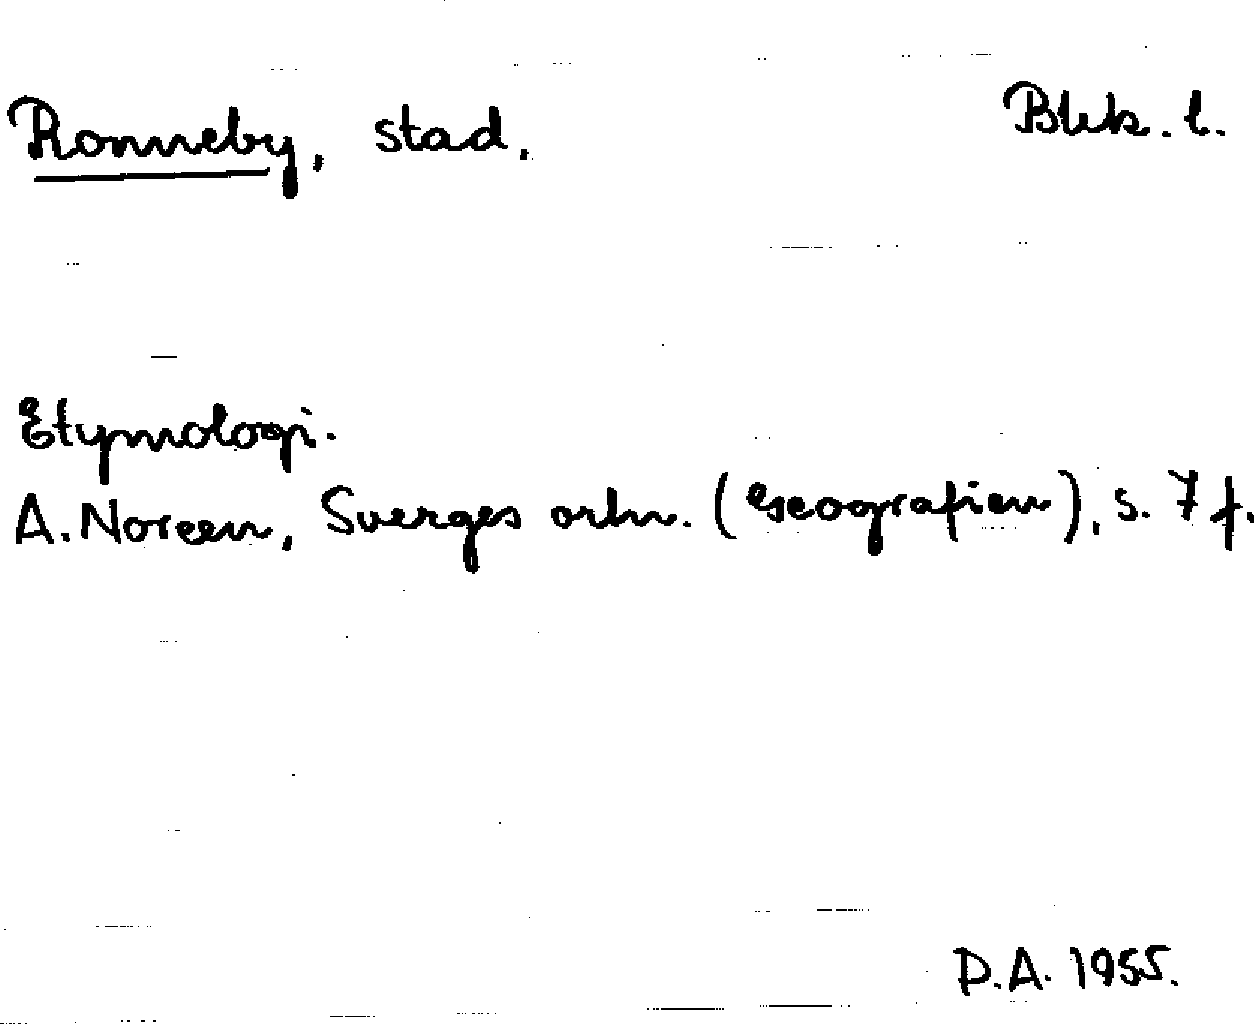 Ronneby, stad. Blek. l.
Etymologi.
A. Noreen, Sverges ortn. (Geografien), s. 7 f.
D.A. 1955.